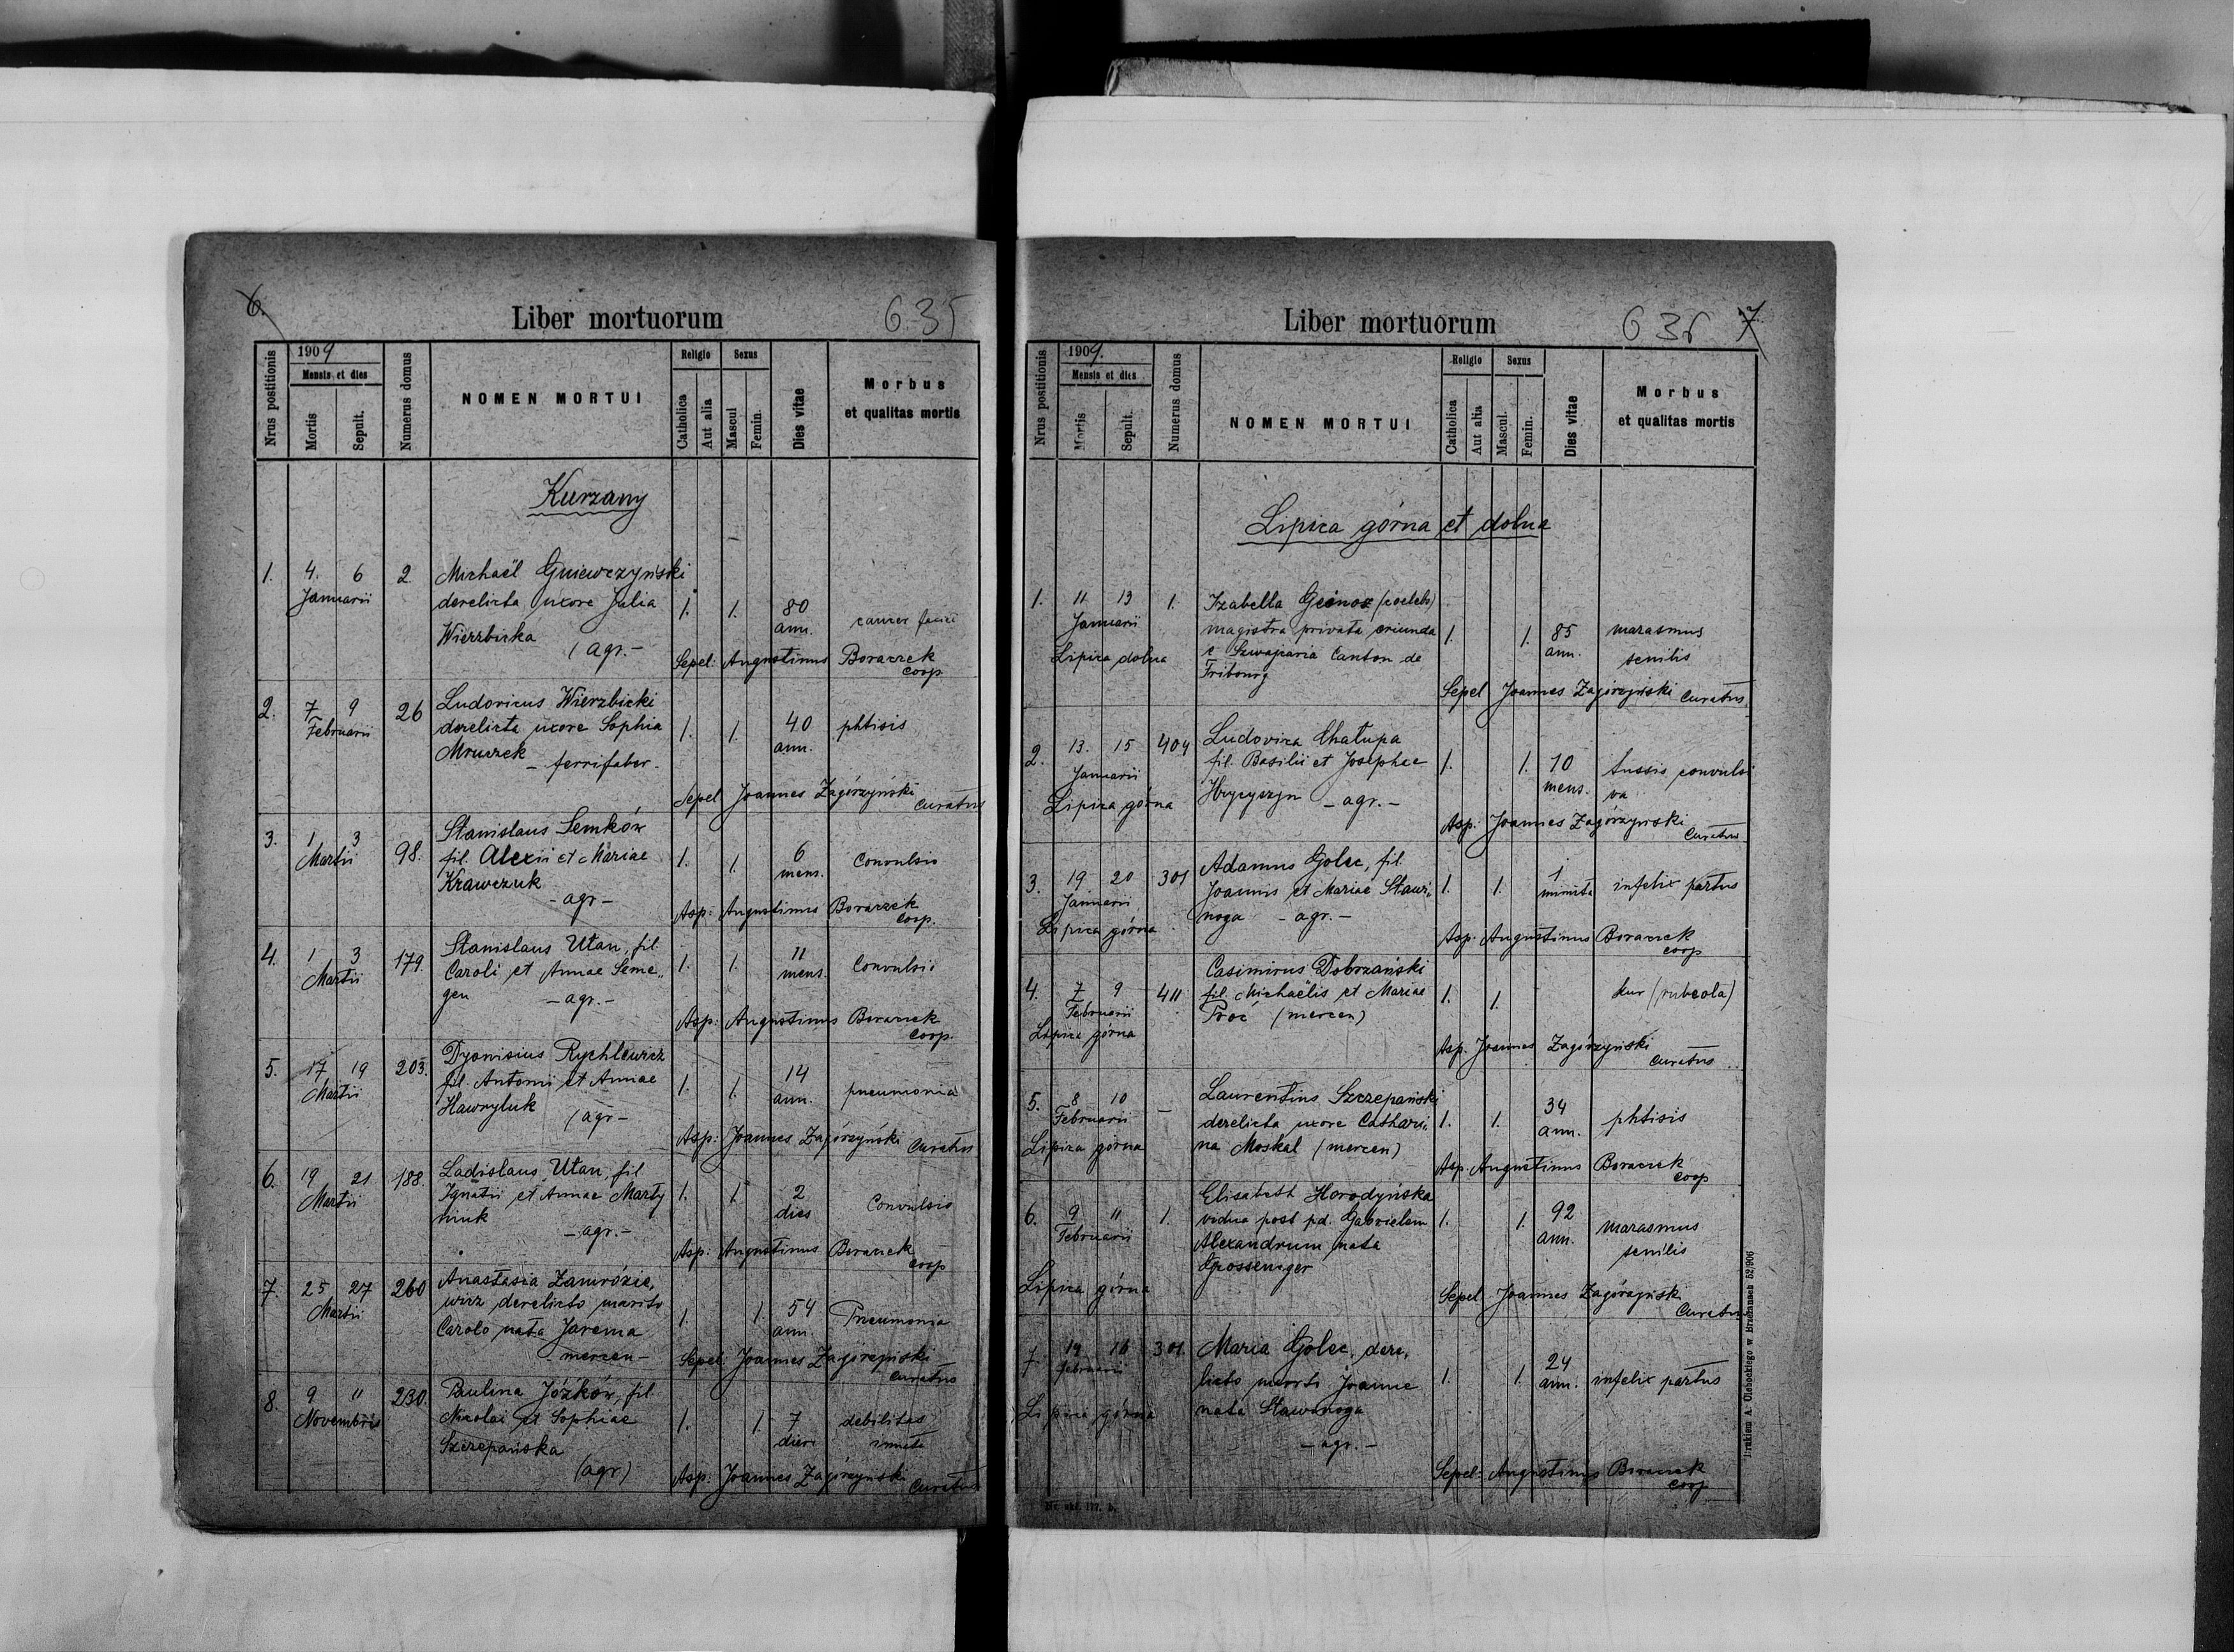 6.
Liber mortuorum
635
Nrus postitionis
1909
Mensis et dies
Mortis
Sepult.
Numerus domus
NOMEN MORTUI
Religio
Catholica
Aut alia
Sexus
Mascul
Femin.
Dies vitae
Morbus
et qualitas mortis
Kurzany
1. 4. 6 2. Michaël Gniewczyński
Januarii derelicta uxore Julia 1. 1. 80
Wierzbicka ann. cancer faciei
(agr.-
Sepel: Augustinus Boraczek
coop
2. 7 9 26 Ludovicus Wierzbicki
Februarii derelicta uxore Sophia 1. 1. 40 phtisis
Mruczek - ferrifaber. ann.
Sepel Joannes Zagórzyński
Curatus
3. 1 3 98. Stanislaus Semków
Martii fil. Alexii et Mariae 1. 1. 6 Convulsio
Krawczuk mens.
- agr -
Asp: Augustinus Boraczek
Coop.
4. 1 3 179. Stanislaus Utan, fil.
Martii Caroli et Annae Seme„ 1. 1. 11 Convulsio
gen - agr. - mens.
Asp: Augustinus Boraczek
Coop.
5. 17 19 203. Dyonisius Rychlewicz
Martii fil. Antonii et Annae 1. 1. 14 pneumonia
Hawryluk (agr - ann.
Asp: Joannes Zagórzyński
Curatus
6. 19 21 188. Ladislaus Utan, fil
Martii Ignatii et Annae Marty 1. 1. 2 Convulsio
niuk dies
- agr. -
Asp: Augustinus Boraczek
coop
7. 25 27 260 Anastasia Zamrózie„
Martii wicz derelicto marito 1. 1. 54 Pneumonia
Carolo nata Jarema ann.
mercen -
Sepel: Joannes Zagórzyński
Curatus
8. 9 11 230. Paulina Józków, fil
Novembris Nicolai et Sophiae 1. 1. 7 debilitas
Szczepańska dieri innata
(agr)
Asp: Joannes Zagórzyński
Curatus
Liber mortuorum
636 7
Nrus postitionis
1909.
Mensis et dies
Mortis
Sepult.
Numerus domus
NOMEN MORTUI
Religio
Catholica
Aut alia
Sexus
Mascul.
Femin.
Dies vitae
Morbus
et qualitas mortis
Lipica górna et dolna
1. 11 13 1. Izabella Geinoz (coelebs)
Januarii magistra privata oriunda 1. 1. 85 marasmus
Lipica dolna e Szwajcaria Canton de ann. senilis
Fribourg
Sepel Joannes Zagórzyński Curatus
2. 13. 15 404 Ludovica Chałupa
Januarii fil. Basilii et Josephae 1. 1. 10 tussis convulsi
Lipica górna Hrycyszyn - agr. - mens. va
Asp: Joannes Zagórzyński
Curatus
3. 19 20 301 Adamus Golec, fil.
Januarii Joannis et Mariae Stawi„ 1. 1. 1 infelix partus
Lipica górna noga - agr. - minuta
Asp. Augustinus Boraczek
coop
4. 7 9 411 Casimirus Dobrzański
Februarii fil. Michaëlis et Mariae 1. 1. kur (rubeola)
Lipica górna Proć (mercen)
Asp. Joannes Zagórzyński
Curatus
5. 8 10 - Laurentius Szczepański
Februarii derelicta uxore Cathari„ 1. 1. 34 phtisis
Lipica górna na Moskal (mercen) ann.
Asp. Augustinus Boraczek
coop
6. 9 11 1. Elisabeth Horodyńska
Februarii vidua post pd. Gabrielem 1. 1. 92 marasmus
Alexandrum nata ann. senilis
Grosseniger
Lipica górna
Sepel Joannes Zagórzyński
Curatus
7. 14 16 301. Maria Golec, dere„
Februarii licto marito Joanne 1. 1. 24 infelix partus
Lipica górna nata Stawinoga ann.
- agr. -
Sepel: Augustinus Boraczek
coop
Drukiem A. Olebockiego w Brzeżanach 52/906